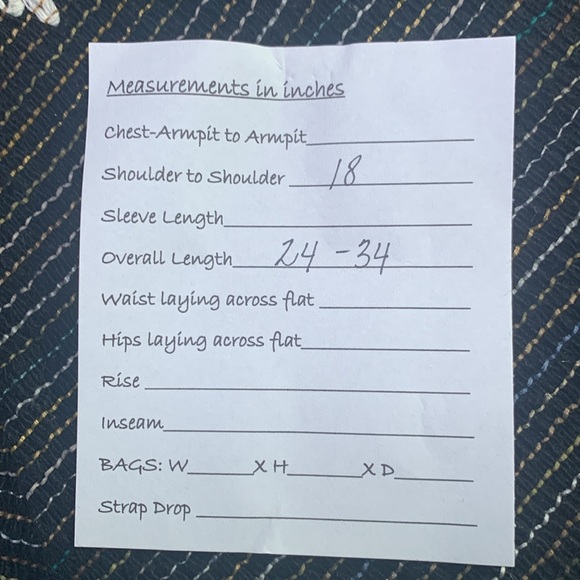 Measurements in inches
Chest-Armpit to Armpit
Shoulder to Shoulder 18
Sleeve Length
Overall Length 24 - 34
Waist laying across flat
Hips laying across flat
Rise
Inseam
BAGS: W X H X D
Strap Drop